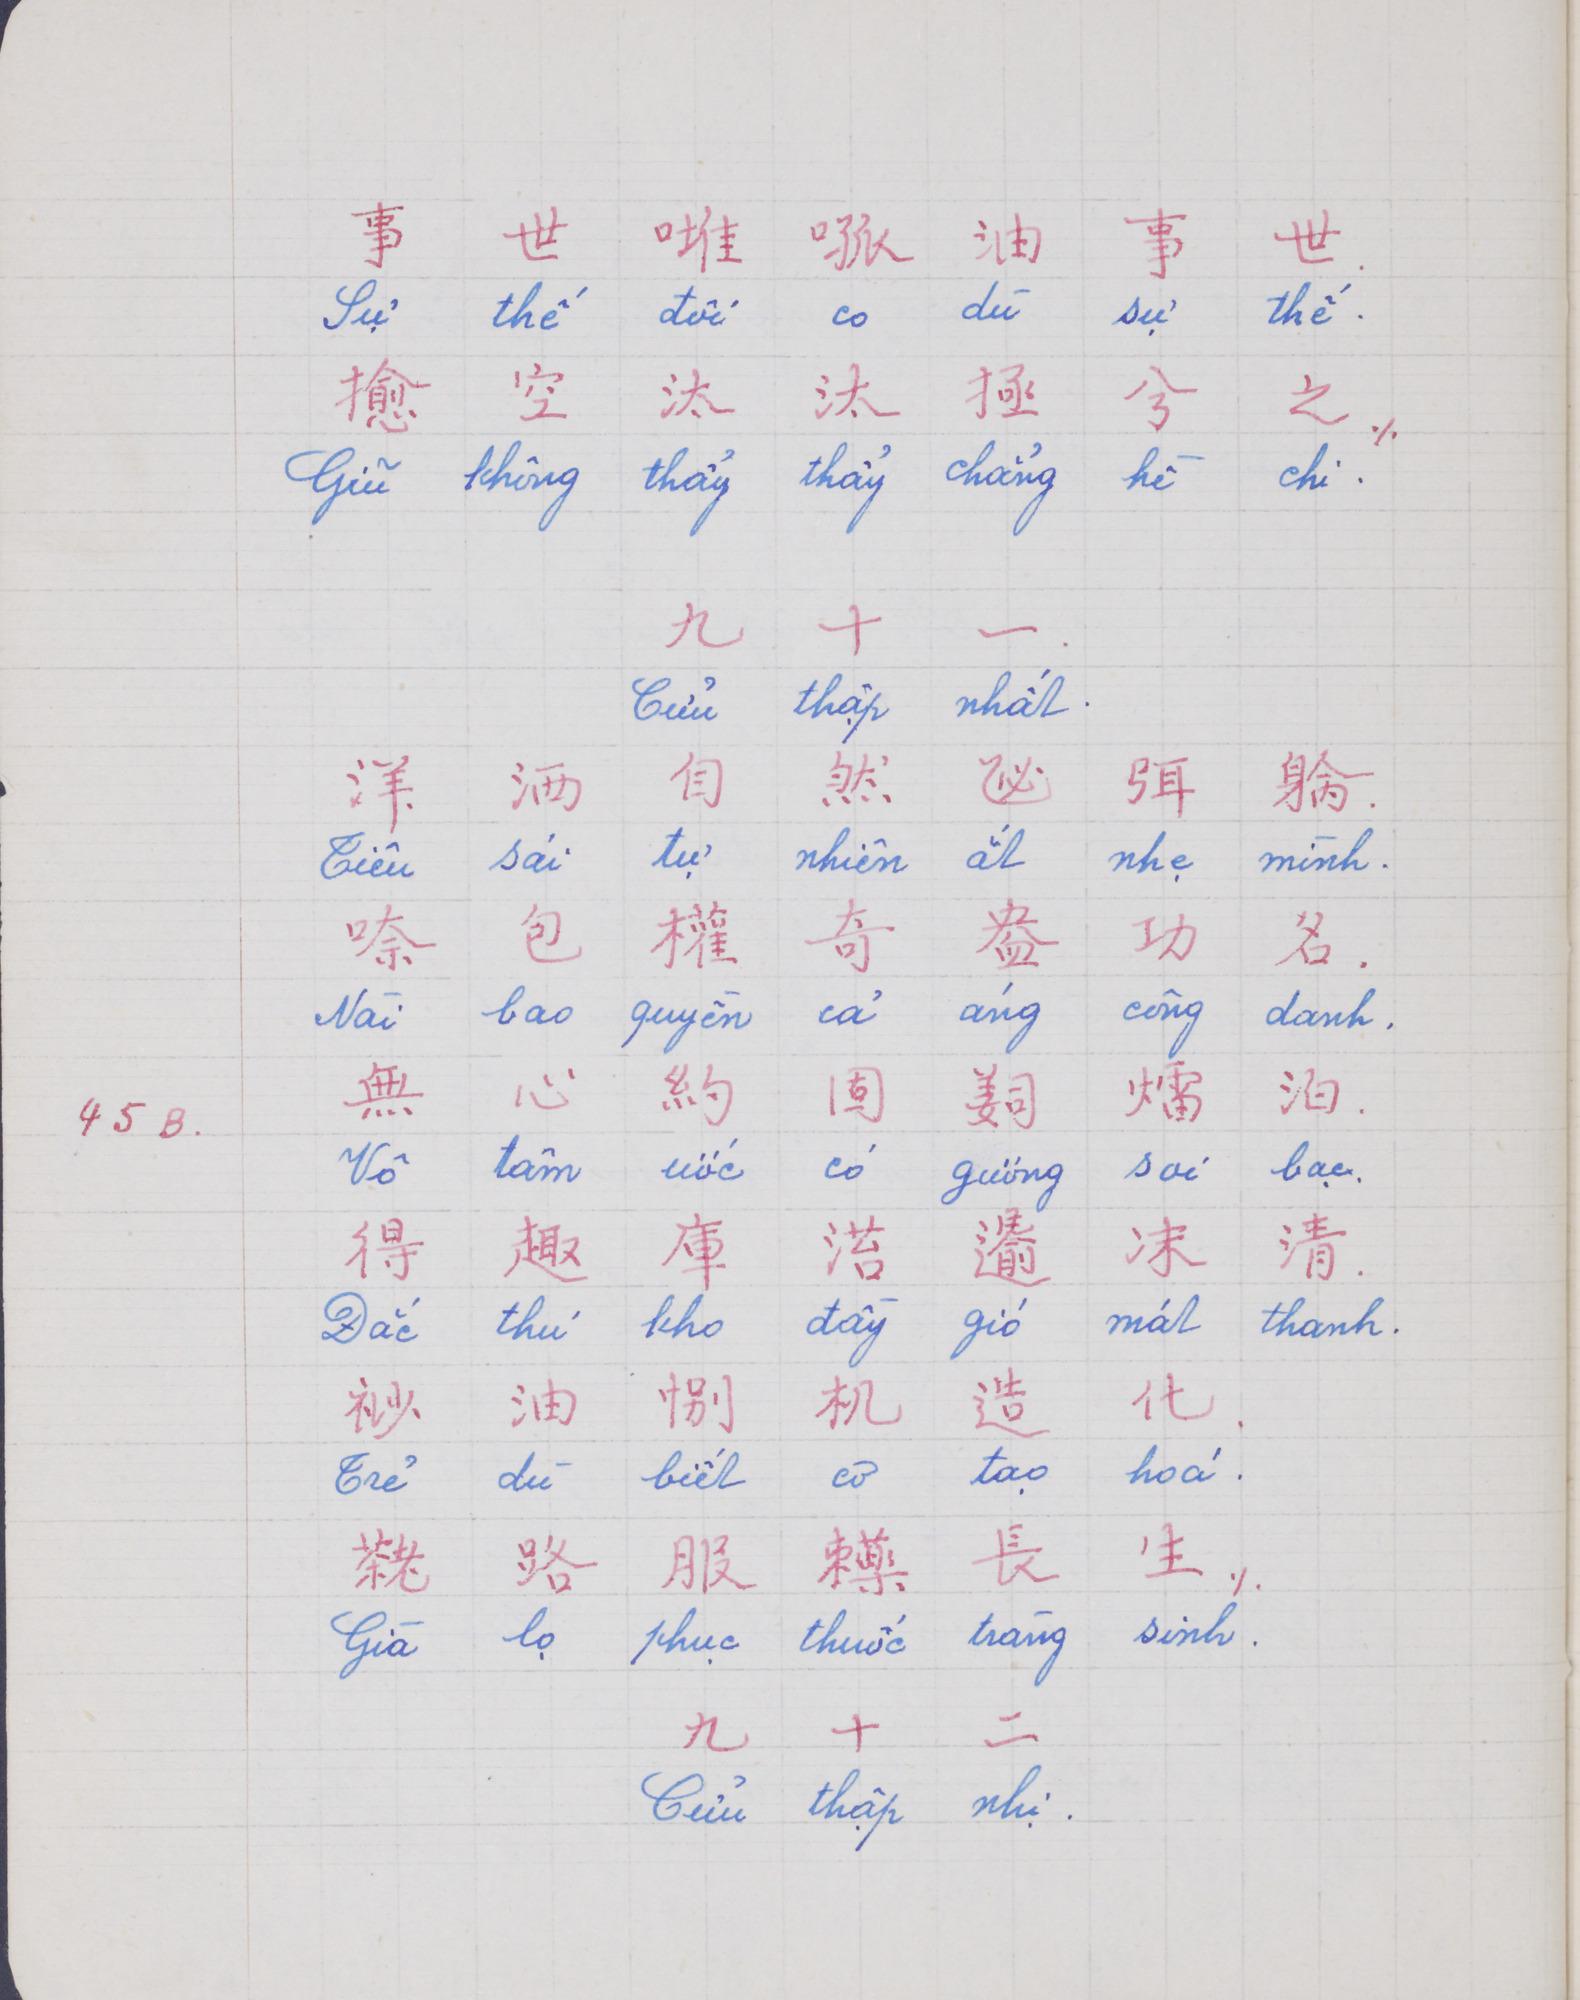 事 世 嘊 㖫 油 事 世.
Sự thế đôi co dù sự thế.
空 汰 汰 拯 兮 之 ٪.
Giữ không thẩy thẩy chẳng hề chi.
九 十 一.
Cửu thập nhất.
洋 洒 自 然 弭 躺.
Tiêu sái tự nhiên ắt nhẹ mình.
㖠 包 權 奇 盎 功 名.
Nài bao quyền cả áng công danh.
無 心 約 固 𦎛 𤐝 泊.
45B.
Vô tâm ước có gương soi bạc.
得 趣 庫 𣹓 沫 清.
Đắc thú kho đầy gió mát thanh.
油 別 机 造 化.
Trẻ dù biết cơ tạo hoá.
路 服 長 生 ٪.
Già lọ phục thuốc tràng sinh.
九 十 二
Cửu thập nhị.